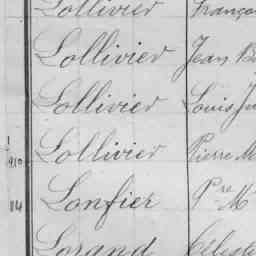 Lollivier Franço
Lollivier Jean B
Lollivier Louis Ju
1
910 Lollivier Pierre M
114 Lonfier Pre M
Lorand Céleste